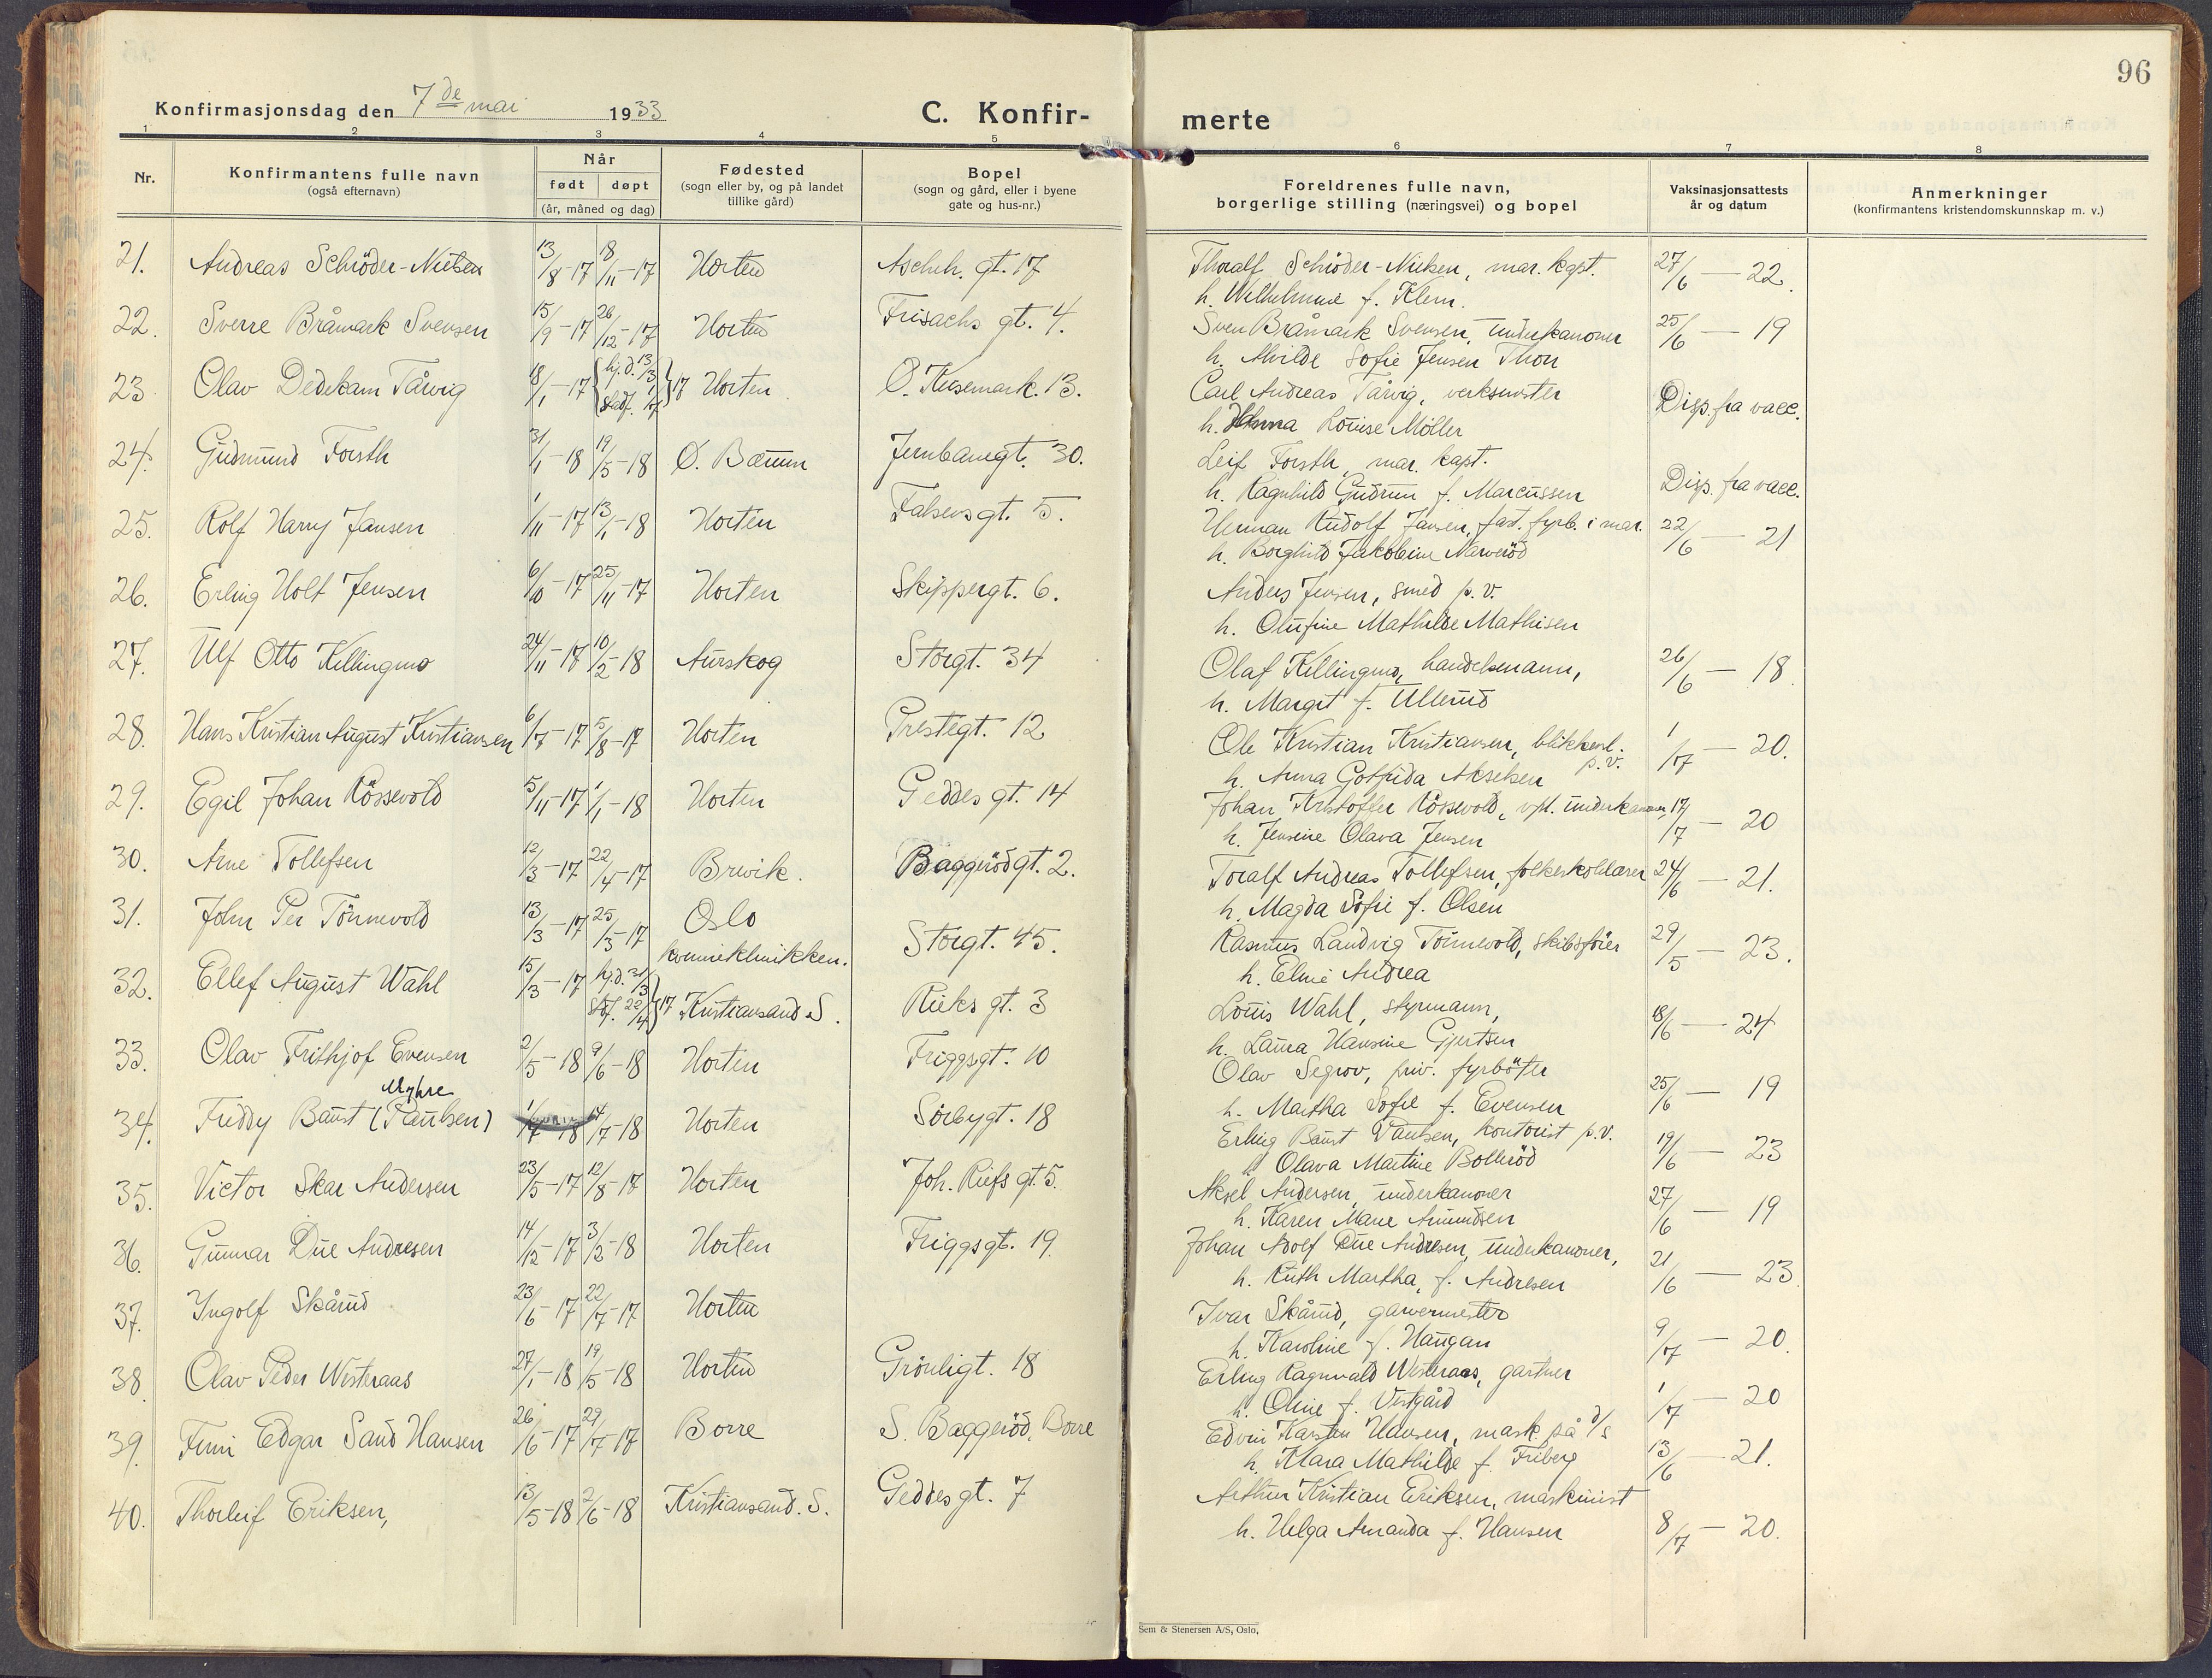 96
Konfirmasjonsdag den 7de mai 1933
C. Konfir-
merte
1 2 3 4 5 6 7 8
Nr.
Konfirmantens fulle navn
(også efternavn)
Når
født døpt
(år, måned og dag)
Fødested
(sogn eller by, og på landet
tillike gård)
Bopel
(sogn og gård, eller i byene
gate og hus-nr.)
Foreldrenes fulle navn,
borgerlige stilling (næringsvei) og bopel
Vaksinasjonsattests
år og datum
Anmerkninger
(konfirmantens kristendomskunnskap m. v.)
21. Andreas Schröder-Nielsen 13/8-17 18/11-17 Horten Aschch. gt. 17 Thoralf Schröder-Nielsen, mar. kapt. 27/6 — 22.
h. Wilhelmine f. Klem.
22. Sverre Bråmark Svensen 15/9-17 26/12-17 Horten Frisachs gt. 4. Sven Bråmark Svensen, underkanoner 25/6 — 19
h. Alvilde Sofie Jensen Thon
23 Olav Dedekam Tårvig 18/1-17 {hj.d. 13/3 stadf. }17 Horten Ö. Keisemark. 13. Carl Andreas Tårvig, verksmester Disp. fra vacc.
h. Hanna Louise Möller
24. Gudmund Forsth 31/1-18 19/5-18 Ø. Bærum Jernbanegt. 30. Leif Forsth, mar. kapt. Disp. fra vacc.
h. Ragnhild Gudrun f. Marcussen
25. Rolf Harry Jansen 1/11-17 13/1-18 Horten Falsensgt. 5. Herman Rudolf Jansen, fast. fyrb. i mar. 22/6 — 21
h. Borghild Jakobine Narveröd
26. Erling Holt Jensen 6/10-17 25/11-17 Horten Skippergt. 6. Anders Jensen, smed p. v.
h. Olufine Mathilde Mathisen
27. Ulf Otto Killingmo 24/11-17 10/2-18 Aurskog Storgt. 34 Olaf Killingmo, handelsmann, 26/6 — 18.
h. Margit f. Ullerud
28. Hans Kristian August Kristiansen 6/7-17 5/8-17 Horten Prestegt. 12 Ole Kristian Kristiansen, blikkensl. p.v. 1/7 — 20.
h. Anna Gotfrida Akselsen
29. Egil Johan Rössevold 5/11-17 1/1-18 Horten Geddes gt. 14 Johan Kristoffer Rössevold, vpl. underkanoner, 17/7 — 20
h. Jensine Olava Jensen
30. Arne Tollefsen 12/3-17 22/4-17 Brevik. Baggerödgt. 2. Toralf Andreas Tollefsen, folkeskolelærer 24/6 — 21.
h. Magda Sofie f. Olsen
31. John Per Tönnevold 13/3-17 25/3-17 Oslo kvinneklinikken. Storgt. 45. Rasmus Landvig Tönnevold, skibsförer 29/5 — 23.
h. Eline Andrea
32. Ellef August Wahl 15/3-17 hj.d. 31/3 stdf. 22/4 }17 Kristiansand S. Rieks gt. 3 Louis Wahl, styrmann, 18/6 — 24
h. Laura Hansine Gjertsen
33. Olav Frithjof Evensen 2/5-18 9/6-18 Horten Friggsgt. 10 Olav Segrov, priv. fyrböter 25/6 — 19
h. Martha Sofie f. Evensen
Myhre
34. Freddy Baust (Paulsen) 1/4-18 14/7-18 Horten Sörbygt. 18 Erling Baust Paulsen, kontorist p.v. 19/6 — 23
h. Olava Martine Bolleröd
35. Victor Skar Andersen 23/5-17 12/8-17 Horten Joh. Riefs gt. 5. Aksel Andersen, underkanoner 27/6 — 19
h. Karen Marie Amundsen
36. Gunnar Due Andresen 14/12-17 3/2-18 Horten Friggsgt. 19. Johan Adolf Due Andresen, underkanoner, 21/6 — 23.
h. Ruth Martha, f. Andresen
37. Ingolf Skårud 23/6-17 22/7-17 Horten Ivar Skårud, garvermester 9/7 — 20.
h. Karoline f. Haugan
38. Olav Peder Westeraas 27/1-18 19/5-18 Horten Grönligt. 18 Erling Ragnvald Westeraas, gartner 1/7 — 20
h. Oline f. Vestgård
39. Finn Edgar Sand Hansen 26/6-17 29/7-17 Borre S. Baggeröd, Borre Edvin Karsten Hansen, mask. på d/s 13/6 — 21.
h. Klara Mathilde f. Friberg
40. Thorleif Eriksen, 13/5-18 2/6-18 Kristiansand. S. Geddes gt. 7 Arthur Kristian Eriksen, maskinist 8/7 — 20.
h. Helga Amanda f. Hansen
Sem & Stenersen A/S, Oslo.